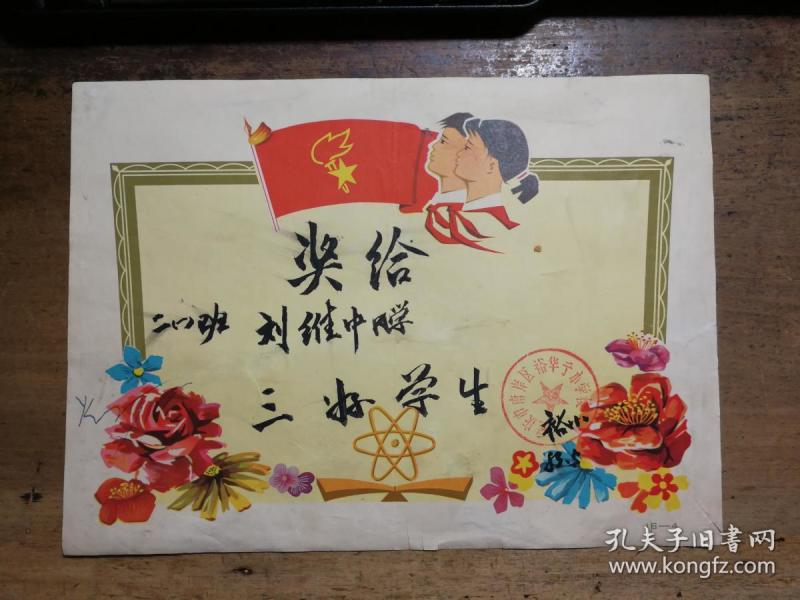 奖给
二四班 刘维中同学
三好学生
市南岸区裕华子小学校
裕小
孔夫子旧书网
www.kongfz.com